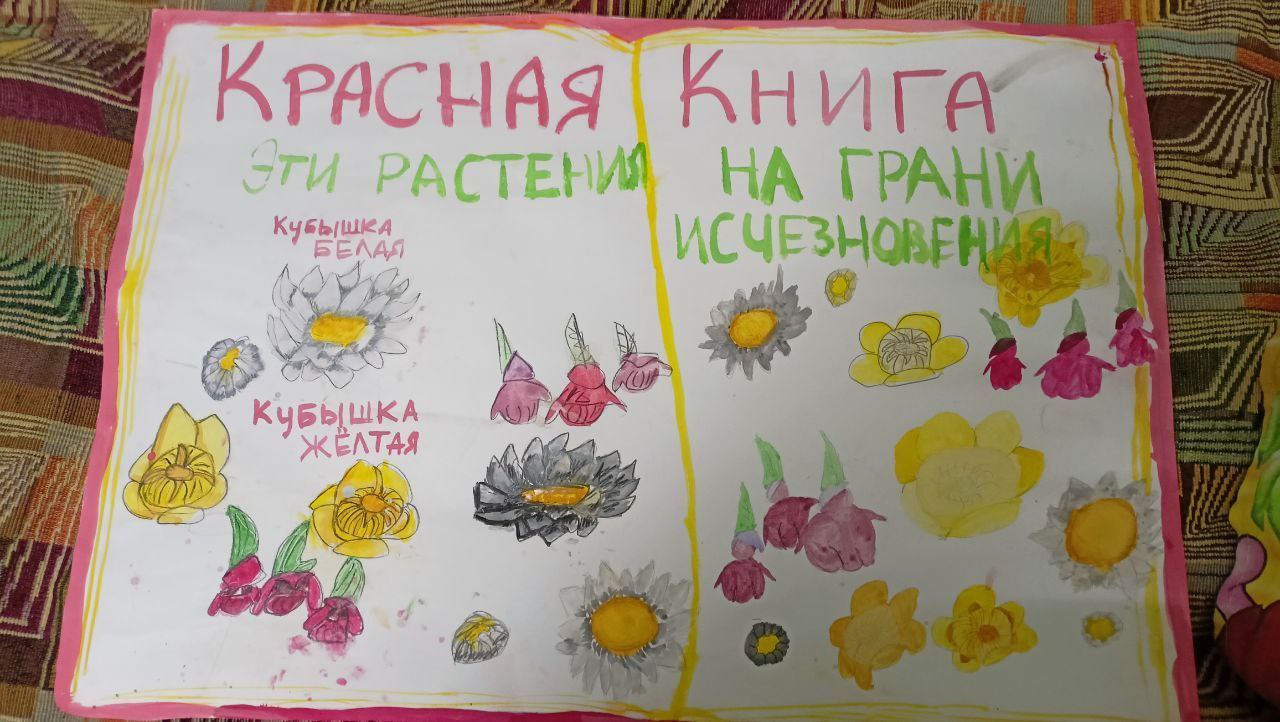 КРАСНАЯ КНИГА
ЭТИ РАСТЕНИЯ НА ГРАНИ
ИСЧЕЗНОВЕНИЯ
КУБЫШКА
БЕЛАЯ
КУБЫШКА
ЖЁЛТАЯ